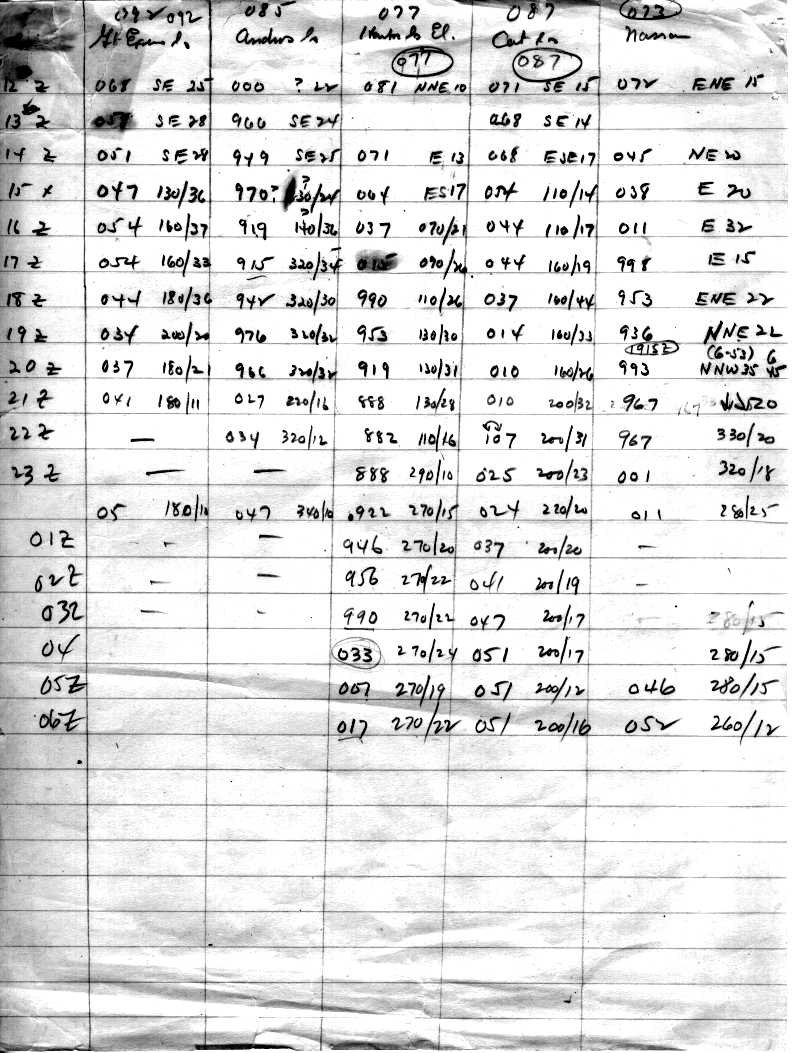 092 085 077 087 073
Andros Is El. Cat Is Nassau
077 087
12 Z 068 SE 25 000 ? 22 081 NNE 10 071 SE 15 072 ENE 15
13 Z SE 28 966 SE 24 068 SE 14
14 Z 051 SE 28 949 SE 25 071 E 13 068 ESE 17 045 NE 20
15 047 130/36 970? 130/24 064 ES 17 054 110/14 038 E 20
16 Z 054 160/37 919 140/36 037 070/21 044 110/17 011 E 32
17 Z 054 160/33 915 320/34 015 090/26 044 160/19 998 E 15
18 Z 044 180/36 942 320/30 990 110/26 037 160/44 953 ENE 22
19 Z 034 200/20 976 320/32 953 130/30 014 160/33 936 NNE 22
1915Z (6-53) 6
20 Z 037 180/21 966 320/32 919 130/31 010 160/26 993 NNW 35 45
21 Z 041 180/11 027 220/16 888 130/28 010 200/32 967 20
22 Z — 034 320/12 882 110/16 107 200/31 967 330/20
23 Z — — 888 290/10 025 200/23 001 320/18
05 180/10 047 340/10 .922 270/15 024 220/20 011 280/25
01Z - — 946 270/20 037 200/20 -
02Z - — 956 270/22 041 200/19 -
03Z - - 990 270/22 047 200/17 - 280/15
04 033 270/24 051 200/17 280/15
05Z 007 270/19 051 200/12 046 280/15
06Z 017 270/22 051 200/16 052 260/12